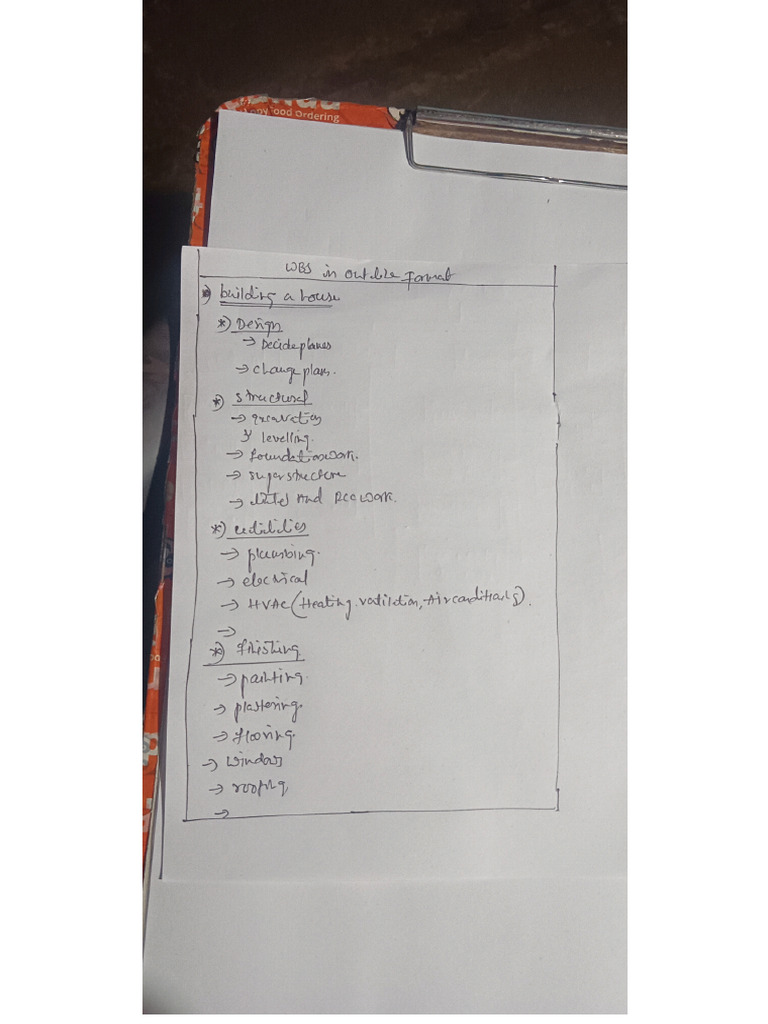 Food Ordering
WBS in outline format
*) building a house
*) Design
→ Decide planes
→ change plans.
*) structural
→ excavation
levelling.
→ foundation work.
→ superstructure
→ And RCC work.
*) utilities
→ plumbing.
→ electrical
→ HVAC (Heating. vatilation, Air conditionig).
→
*) finishing
→ painting.
→ plastering.
→ flooring.
→ windows
→ roofing
→